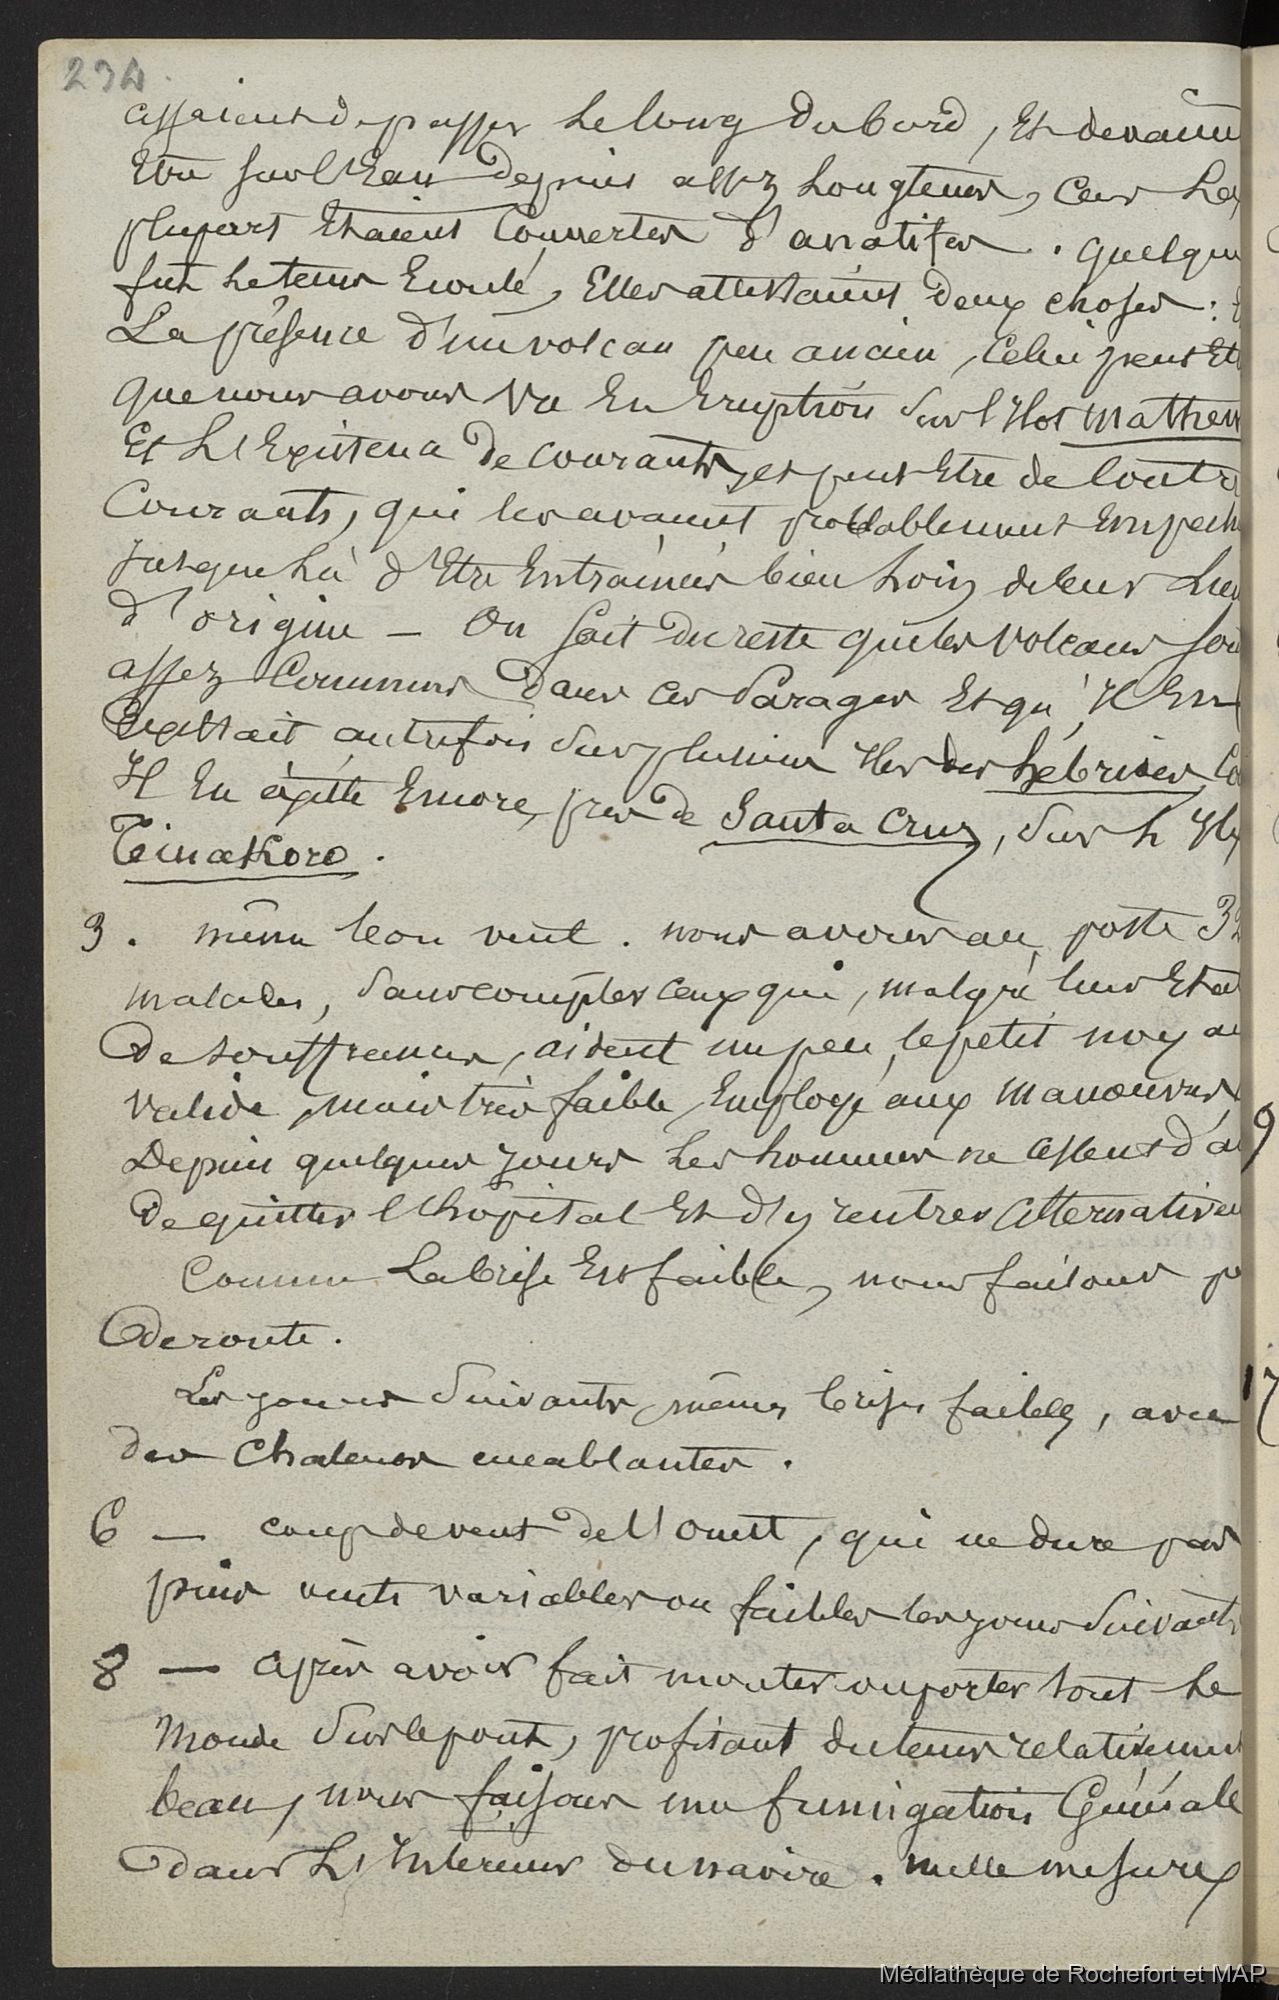 234
cessaient de passer le long du bord, Et devaient
Etre sur l'Eau depuis assez longtems, car la
plupart Etaient Couvertes d'anatifes. quelque
fut le tems Ecoulé, Elles attestaient deux choses:
La présence d'un volcan peu ancien, Celui peut Et
que nous avons Vu En Eruption sur l'Ilot Mathew
Et L'Existence de courants, et peut Etre de Contre
Courants, qui les avaient probablement Empech
jusque là d'Etre Entrainées bien loin de leur Lieu
d'origine — On sait du reste que les Volcans son
assez Communs dans ces Parages Et qu'Il En
Existait autrefois sur plusieurs Iles des hébrides, Co
Il En éxiste Encore, près de Santa Cruz, sur l'Ile
Teinakoro.
3. même bon vent. nous avons au poste 32
malades, sans compter ceux qui, malgré leur Etat
de souffrances, aident un peu le petit noyau
valide, mais très faible, Employé aux Manoeuvres,
Depuis quelques jours les hommes ne cessent d'a
de quitter l'hôpital Et d'y rentrer alternativem
Comme La brise Est faible, nous faisons p
de route.
Les jours Suivants, mêmes brises faibles, avec
des Chaleurs accablantes.
6 — coup de vent de l'ouest, qui ne dure pas
puis vents variables ou faibles les jours Suivants
8 — Après avoir fait monter ou porter tout le
Monde Sur le pont, profitant du tems relativement
beau, nous faisons une fumigation Générale
dans L'Interieur du navire. Mille mesures
9
17
Médiathèque de Rochefort et MAP